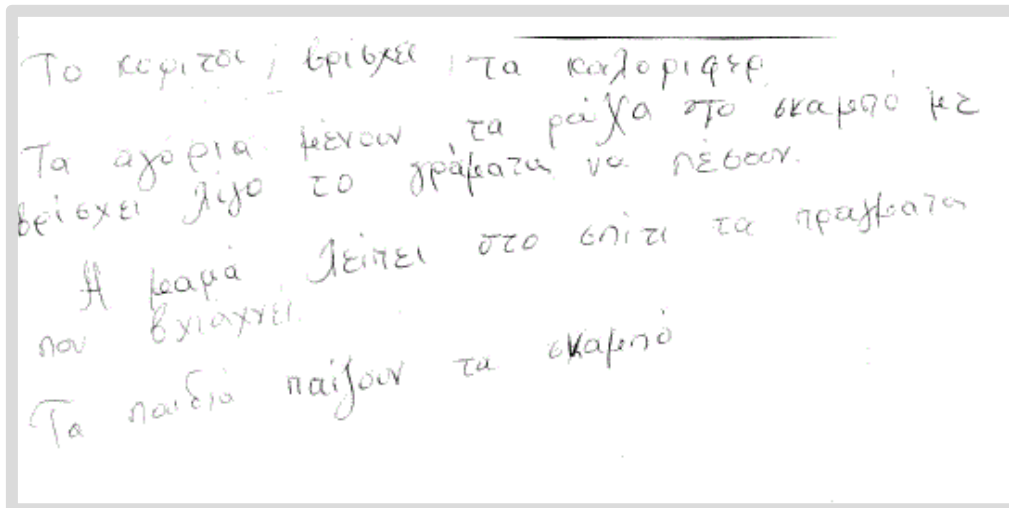 Το κοριτσι βρίσχει τα καλοριφερ
Τα αγόρια μένουν τα ρούχα στο σκαμπό με
βρίσχει λίγο το γράματα να πέσουν.
Η μαμά λείπει στο σπίτι τα πραγματα
που βχιάχνει.
Τα παιδιά παίζουν τα σκαμπό